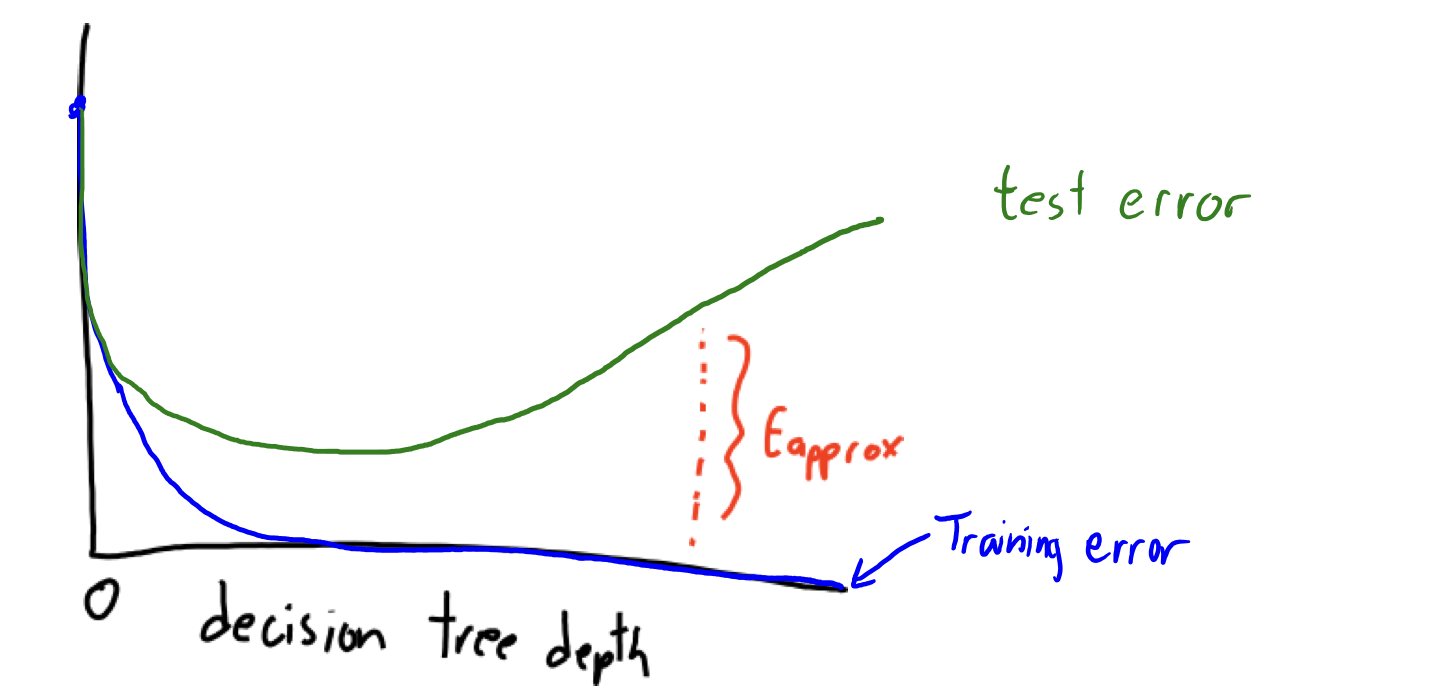 test error
Eapprox
Training error
0
decision tree depth